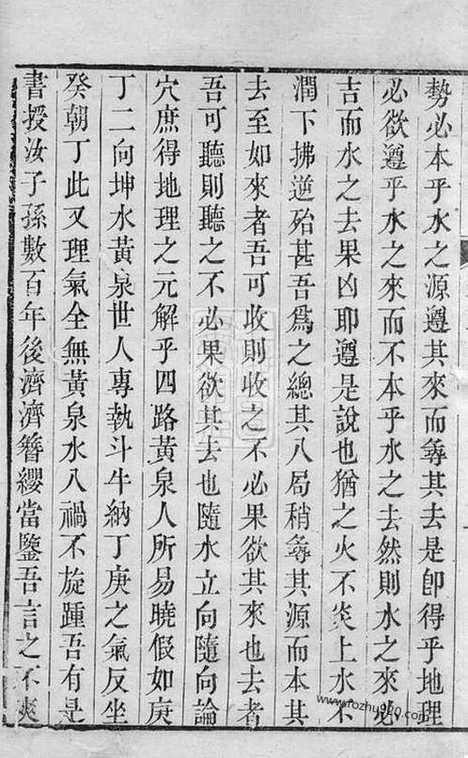 勢必本乎水之源遵其來而尋其去是卽得乎地理
必欲遵乎水之來而不本乎水之去然則水之來必
吉而水之去果凶耶遵是說也猶之火不炎上水不
潤下拂逆殆甚吾爲之總其八局稍尋其源而本其
去至如來者吾可收則收之不必果欲其來也去者
吾可聽則聽之不必果欲其去也隨水立向隨向論
穴庶得地理之元解乎四路黃泉人所易曉假如庚
丁二向坤水黃泉世人專執斗牛納丁庚之氣反坐
癸朝丁此又理氣全無黃泉水八禍不旋踵吾有是
書授汝子孫數百年後濟濟簪纓當鑒吾言之不爽
www.rozhu920.com